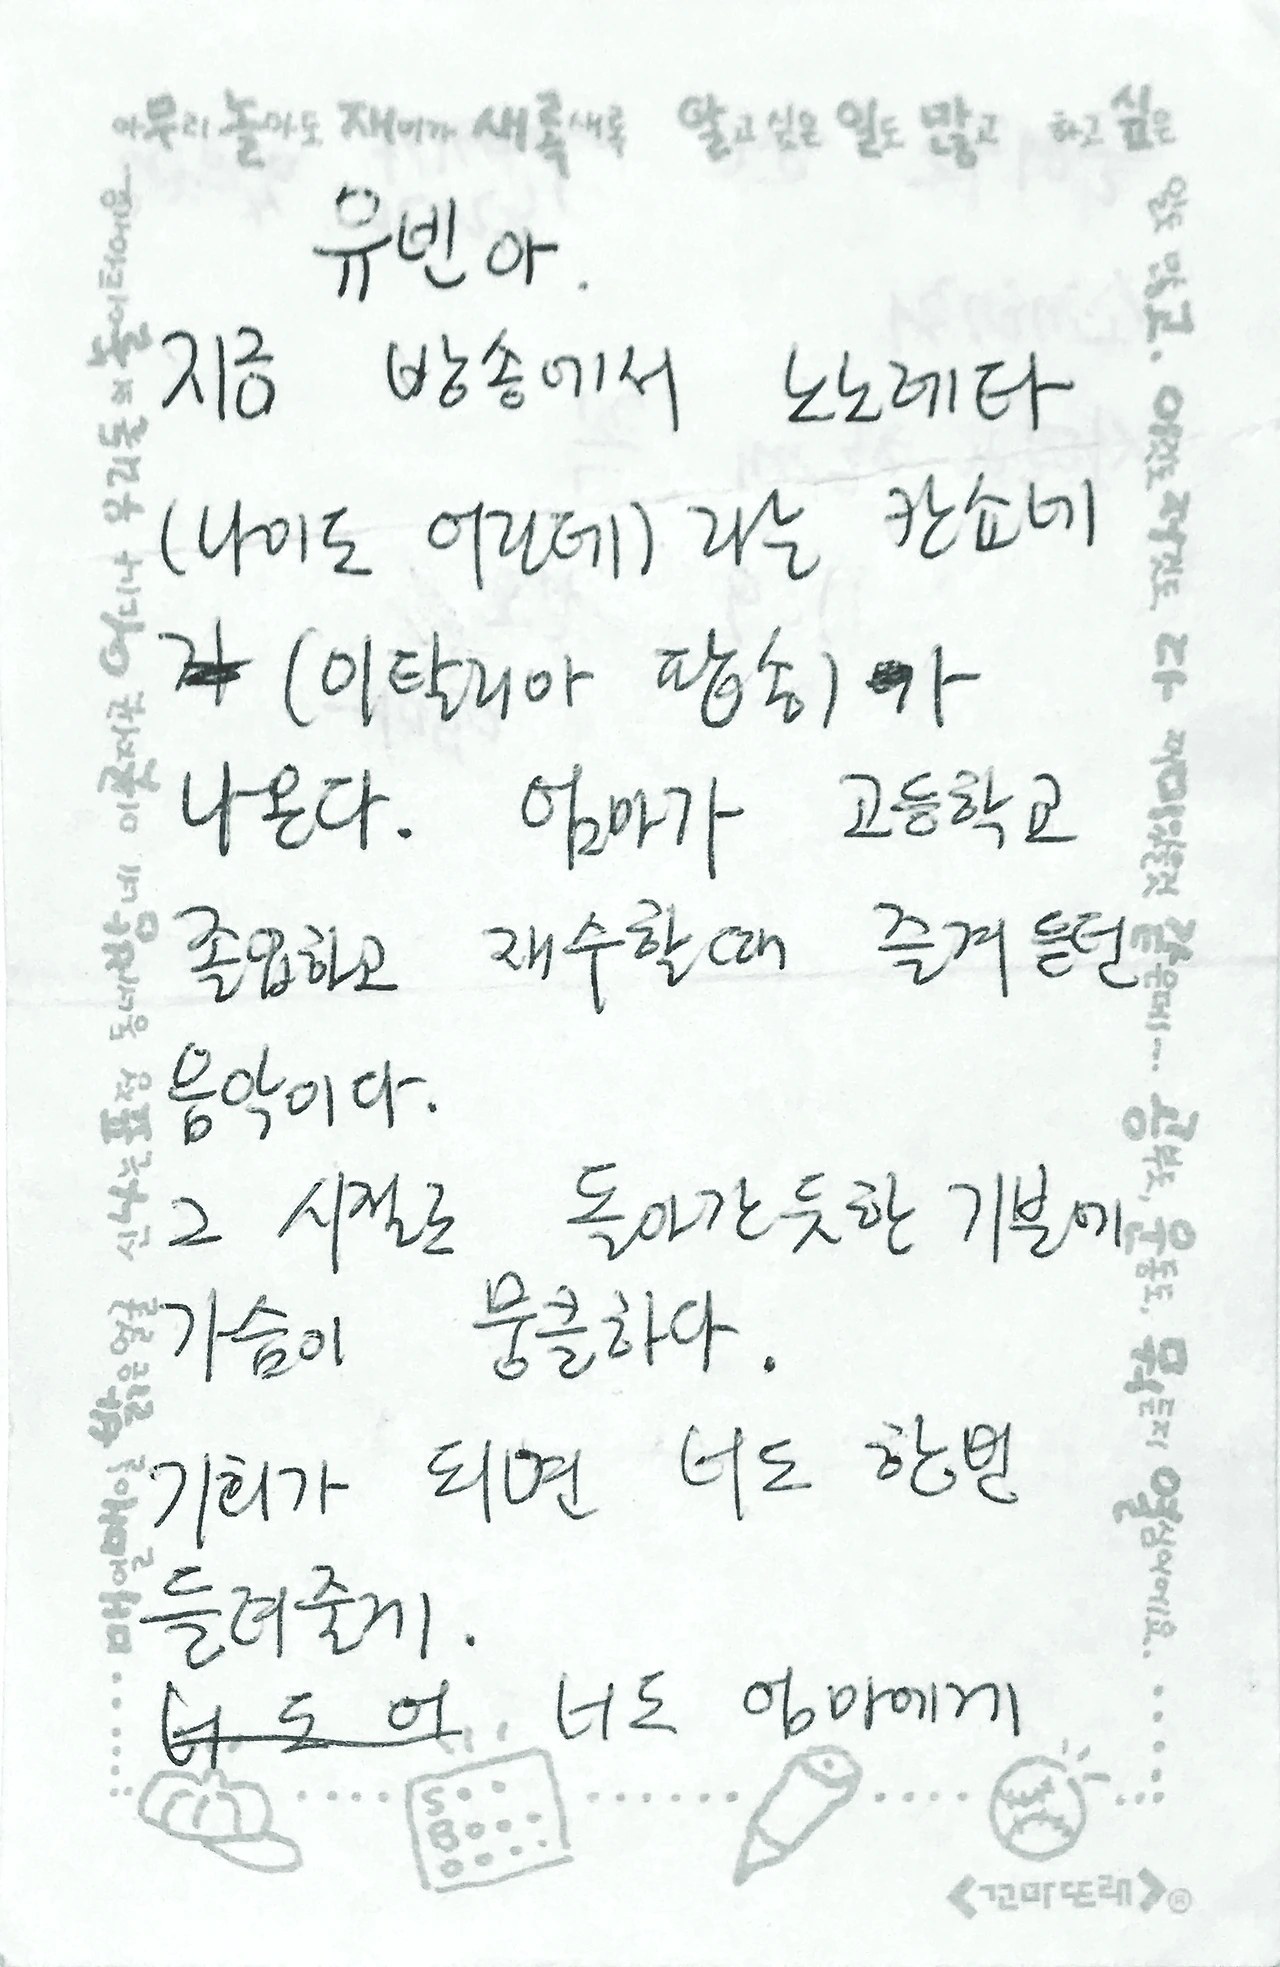 아무리 놀아도 재미가 새록새록 알고 싶은 일도 많고 하고 싶은
일도 많고. 이것도 저것도 다 재미있는것 같은데... 공부도, 운동도, 뭐든지 열심이에요.
유빈아.
지금 방송에서 노노레타
(나이도 어린데) 라는 칸쇼네
(이탈리아 팝송)가
나온다. 엄마가 고등학교
졸업하고 재수할때 즐겨듣던
음악이다.
그 시절로 돌아간듯한 기분에
가슴이 뭉클하다.
기회가 되면 너도 한번
들려줄게.
너도 어 너도 엄마에게
매일매일 밝은얼굴 신나는표정 동네방네 이곳저곳 어디나 우리들의 놀이터에요
S
B
O
<꼬마또래>®